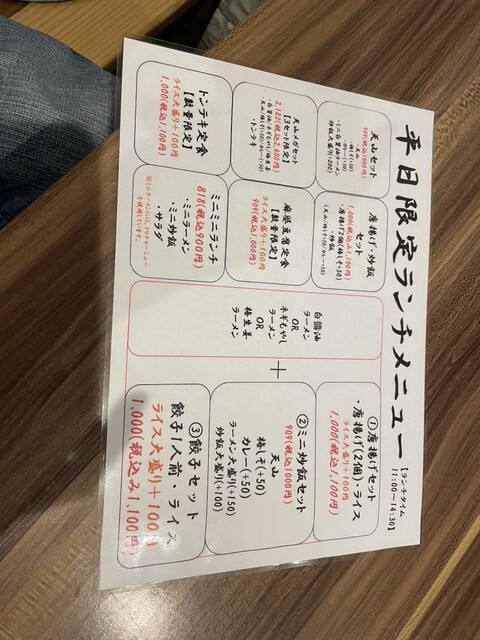 平日限定ランチメニュー
【ランチタイム
11:00~14:30】
天山セット
909(税込1000円)
・天山
・ミニ白醤油ラーメン
炒飯大盛り(+200)
唐揚げ・炒飯
セット
1,000(税込み1,100円)
・唐揚げ2個(梅しそ+50)
・炒飯
(天山/梅しそ+50/カレー+50)
天山メガセット
【3セット限定】
2,182(税込2,400円)
・トンテキ
麻婆豆腐定食
【数量限定】
ライス大盛り+100円
909(税込1,000円)
トンテキ定食
【数量限定】
ライス大盛り+100円
1,000(税込1,100円)
ミニミニランチ
818(税込900円)
・ミニラーメン
・ミニ炒飯
・サラダ
白醤油
ラーメン
OR
ネギもやし
ラーメン
OR
梅生姜
ラーメン
+
①唐揚げセット
・唐揚げ(2個)・ライス
ライス大盛り+100円
1,000(税込1,100円)
②ミニ炒飯セット
909(税込1000円)
天山
梅しそ(+50)
カレー(+50)
ラーメン大盛り(+150)
炒飯大盛り(+100)
③餃子セット
餃子1人前・ライス
ライス大盛り+100円
1.000(税込み1,100円)